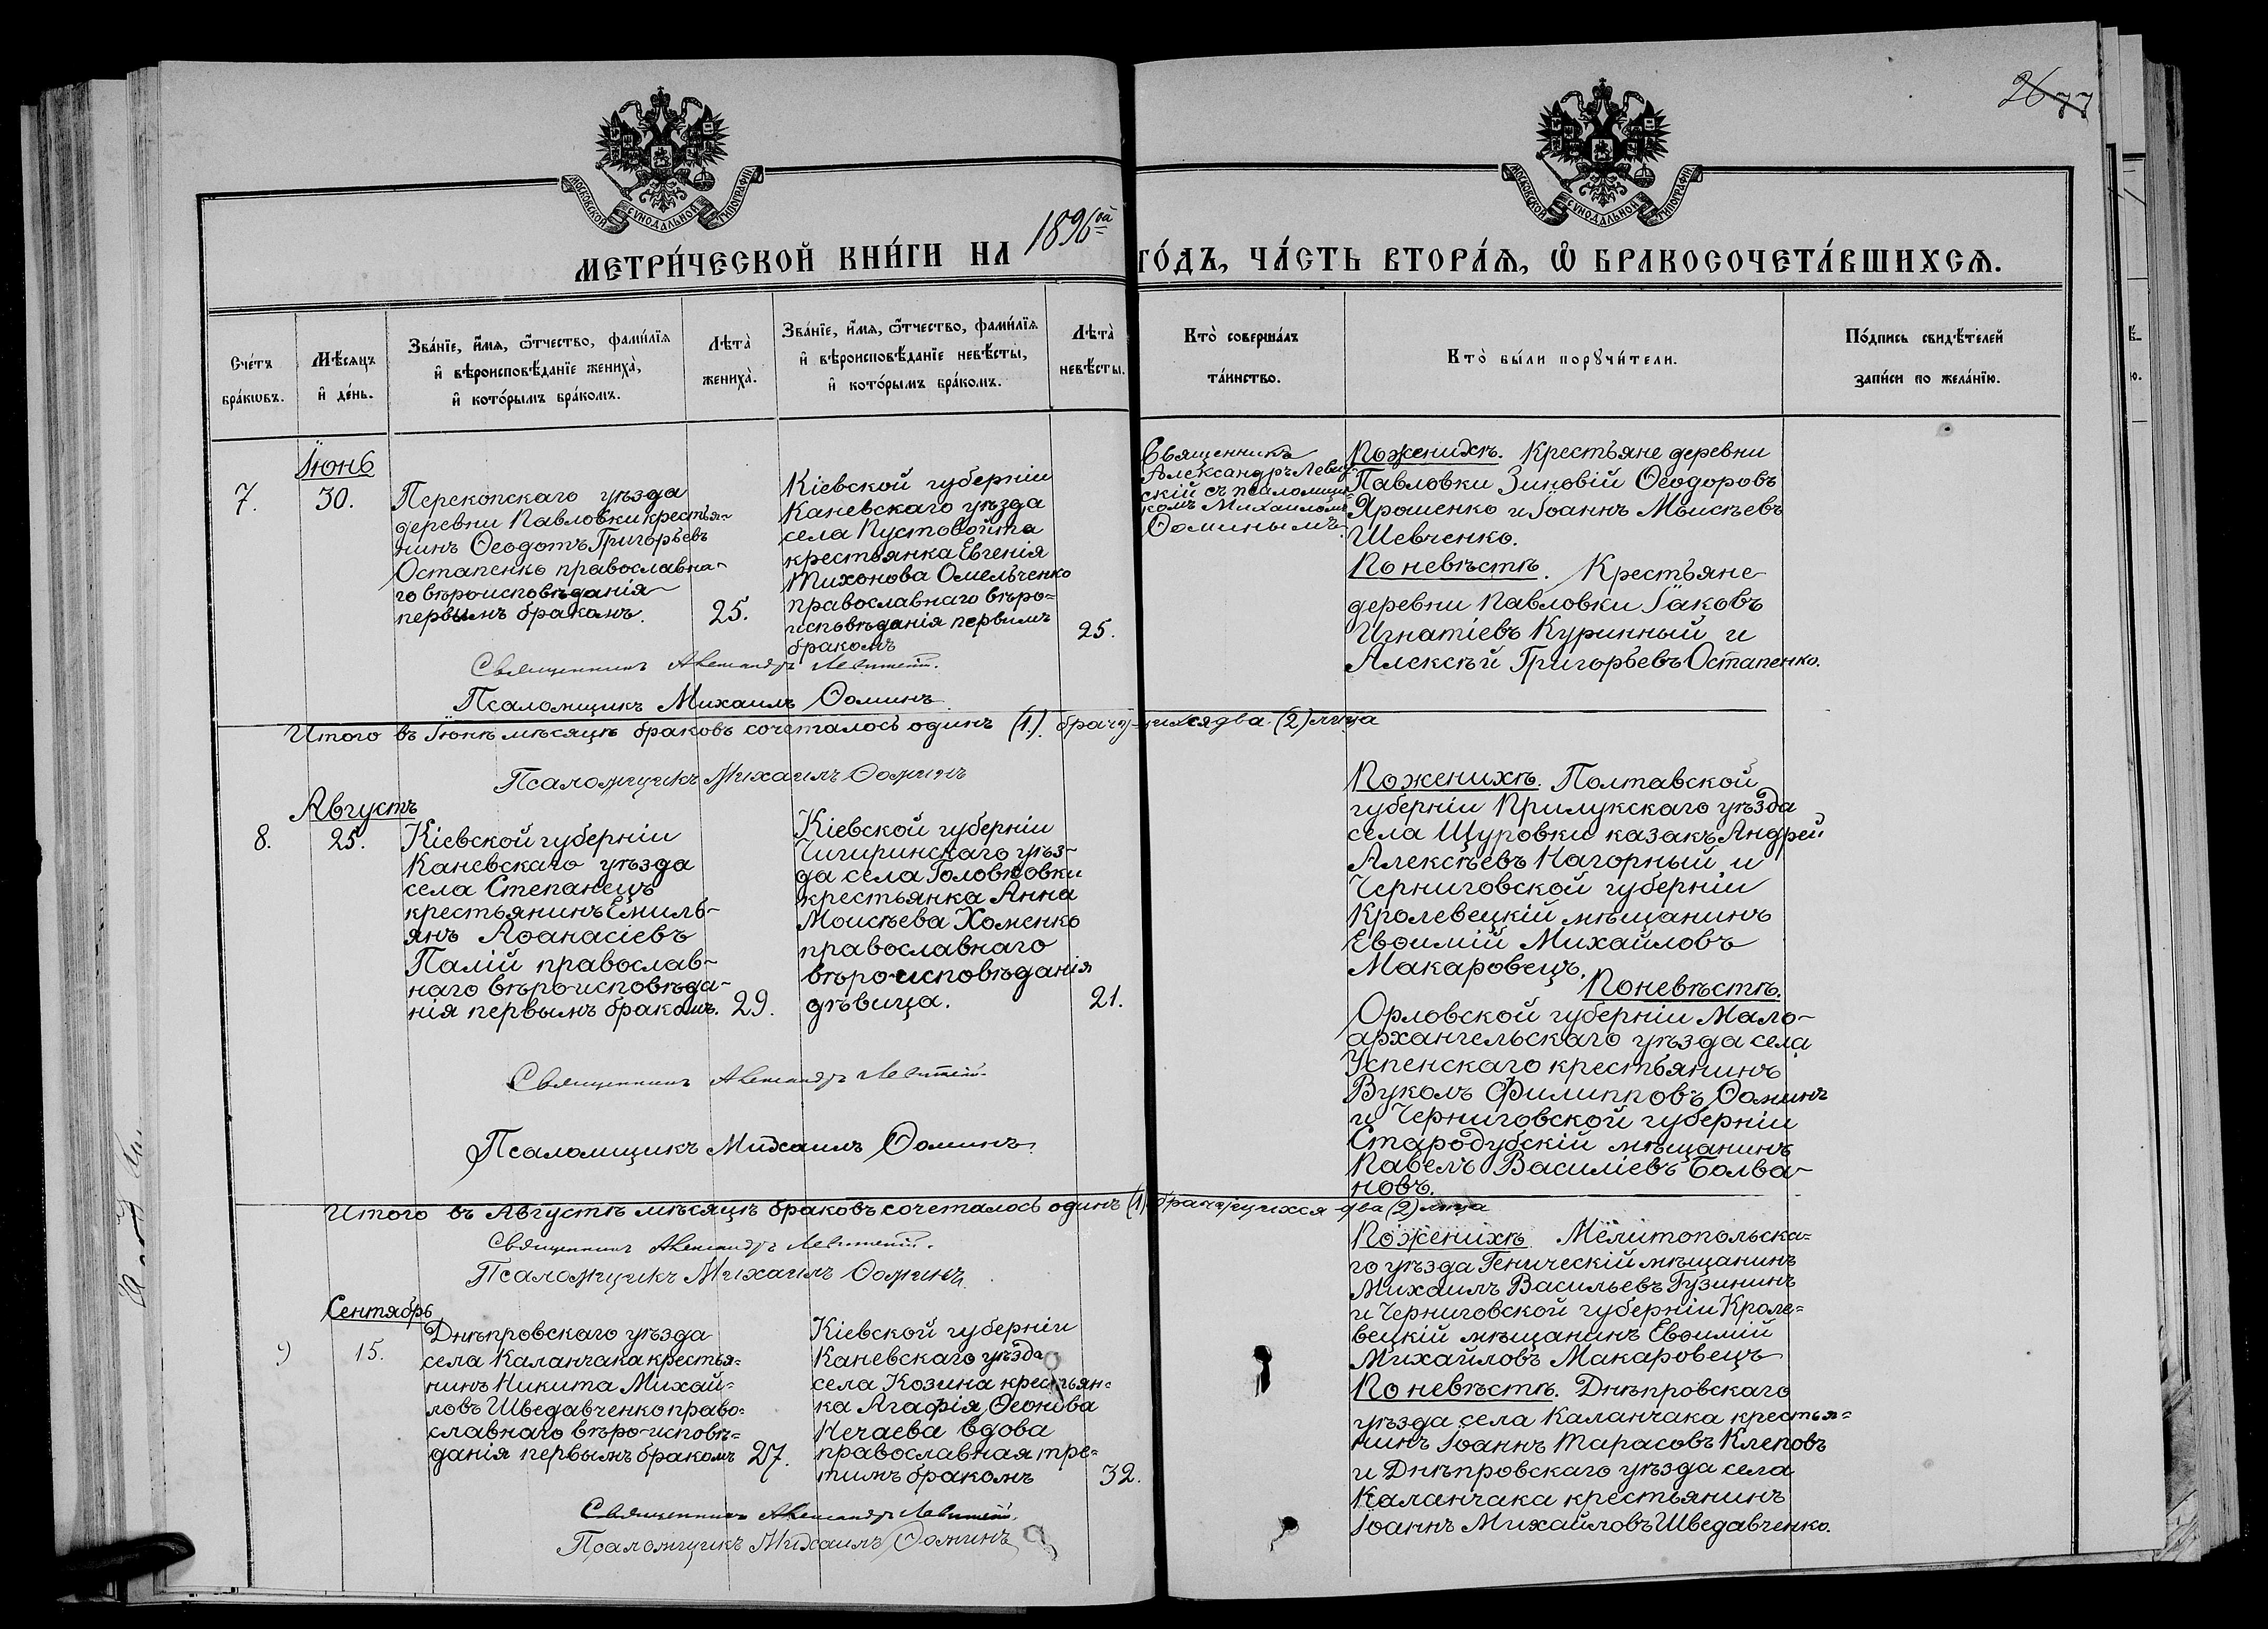 26 77
МОСКОВСКОЙ СѴНОДАЛЬНОЙ ТИПОГРАФІИ
МОСКОВСКОЙ СѴНОДАЛЬНОЙ ТИПОГРАФІИ
МЕТРИ́ЧЕСКОЙ КНИ́ГИ НА 1896 ГО́ДЪ, ЧА́СТЬ ВТОРА́Ѧ, Ѡ҆ БРАКОСОЧЕТА́ВШИХСѦ.
Сче́тъ
бра́кѡвъ.
Мѣ́сѧцъ
и҆ де́нь.
Зва́нїе, и҆́мѧ, ѻ҆́тчество, фами́лїѧ
и҆ вѣроисповѣ́данїе жениха̀,
и҆ кото́рымъ бра́комъ.
Лѣта̀
жениха̀.
Зва́нїе, и҆́мѧ, ѻ҆́тчество, фами́лїѧ
и҆ вѣроисповѣ́данїе невѣ́сты,
и҆ кото́рымъ бра́комъ.
Лѣта̀
невѣ́сты.
Кто̀ соверша́лъ
та́инство.
Кто̀ бы́ли порꙋчи́тели.
По́дпись свидѣ́телей
за́писи по жела́нїю.
Іюнь
7.
30.
Перекопскаго уѣзда
деревни Павловки крестья-
нинъ Ѳеодотъ Григорьевъ
Остапенко православна-
го вѣроисповѣданія
первымъ бракомъ.
25.
Кіевской губерніи
Каневскаго уѣзда
села Пустовойта
крестьянка Евгенія
Тихонова Омельченко
православнаго вѣро=
исповѣданія первымъ
бракомъ
25.
Священникъ
Александръ Левит-
скій съ псаломщи-
комъ Михаиломъ
Ѳоминымъ.
По женихѣ. Крестьяне деревни
Павловки Зиновій Ѳеодоровъ
Ярошенко и Іоаннъ Моисѣевъ
Шевченко.
По невѣстѣ. Крестьяне
деревни Павловки Іаковъ
Игнатіевъ Куринный и
Алексѣй Григорьевъ Остапенко.
Священникъ Александръ Левитскій.
Псаломщикъ Михаилъ Ѳоминъ
Итого въ Іюнѣ мѣсяцѣ браковъ сочеталось одинъ (1). брачущихся два (2) лица
Псаломщикъ Михаилъ Ѳоминъ
Августъ
8.
25.
Кіевской губерніи
Каневскаго уѣзда
села Степанецъ
крестьянинъ Емиль-
янъ Аѳанасіевъ
Палій православ-
наго вѣро-исповѣда-
нія первымъ бракомъ.
29.
Кіевской губерніи
Чигиринскаго уѣз-
да села Головковки
крестьянка Анна
Моисѣева Хоменко
православнаго
вѣро-исповѣданія
дѣвица.
21.
По женихѣ. Полтавской
губерніи Прилукскаго уѣзда
села Щуровки казакъ Андрей
Алексѣевъ Нагорный и
Черниговской губерніи
Кролевецкій мѣщанинъ
Евѳимій Михайловъ
Макаровецъ.
По невѣстѣ.
Орловской губерніи Мало-
архангельскаго уѣзда села
Успенскаго крестьянинъ
Вуколъ Филипповъ Ѳоминъ
и Черниговской губерніи
Стародубскій мѣщанинъ
Павелъ Василіевъ Болва-
новъ.
Священникъ Александръ Левитскій.
Псаломщикъ Михаилъ Ѳоминъ.
Итого въ Августѣ мѣсяцѣ браковъ сочеталось одинъ (1) брачущихся два (2) лица
Священникъ Александръ Левитскій.
Псаломщикъ Михаилъ Ѳоминъ
Сентябрь
9
15.
Днѣпровскаго уѣзда
села Каланчака крестья=
нинъ Никита Михай=
ловъ Шведавченко право=
славнаго вѣро-исповѣ=
данія первымъ бракомъ
27.
Кіевской губерніи
Каневскаго уѣзда
села Козина крестьян=
ка Агафія Ѳеонова
Нечаева вдова
православная тре=
тимъ бракомъ
32.
По женихѣ. Мелитопольска=
го уѣзда Геническій мѣщанинъ
Михаилъ Васильевъ Гузининъ
и Черниговской губерніи Кроле=
вецкій мѣщанинъ Евѳимій
Михайловъ Макаровецъ
По невѣстѣ. Днѣпровскаго
уѣзда села Каланчака крестья=
нинъ Іоаннъ Тарасовъ Клеповъ
и Днѣпровскаго уѣзда села
Каланчака крестьянинъ
Іоаннъ Михайловъ Шведавченко.
Священникъ Александръ Левитскій.
Псаломщикъ Михаилъ Ѳоминъ